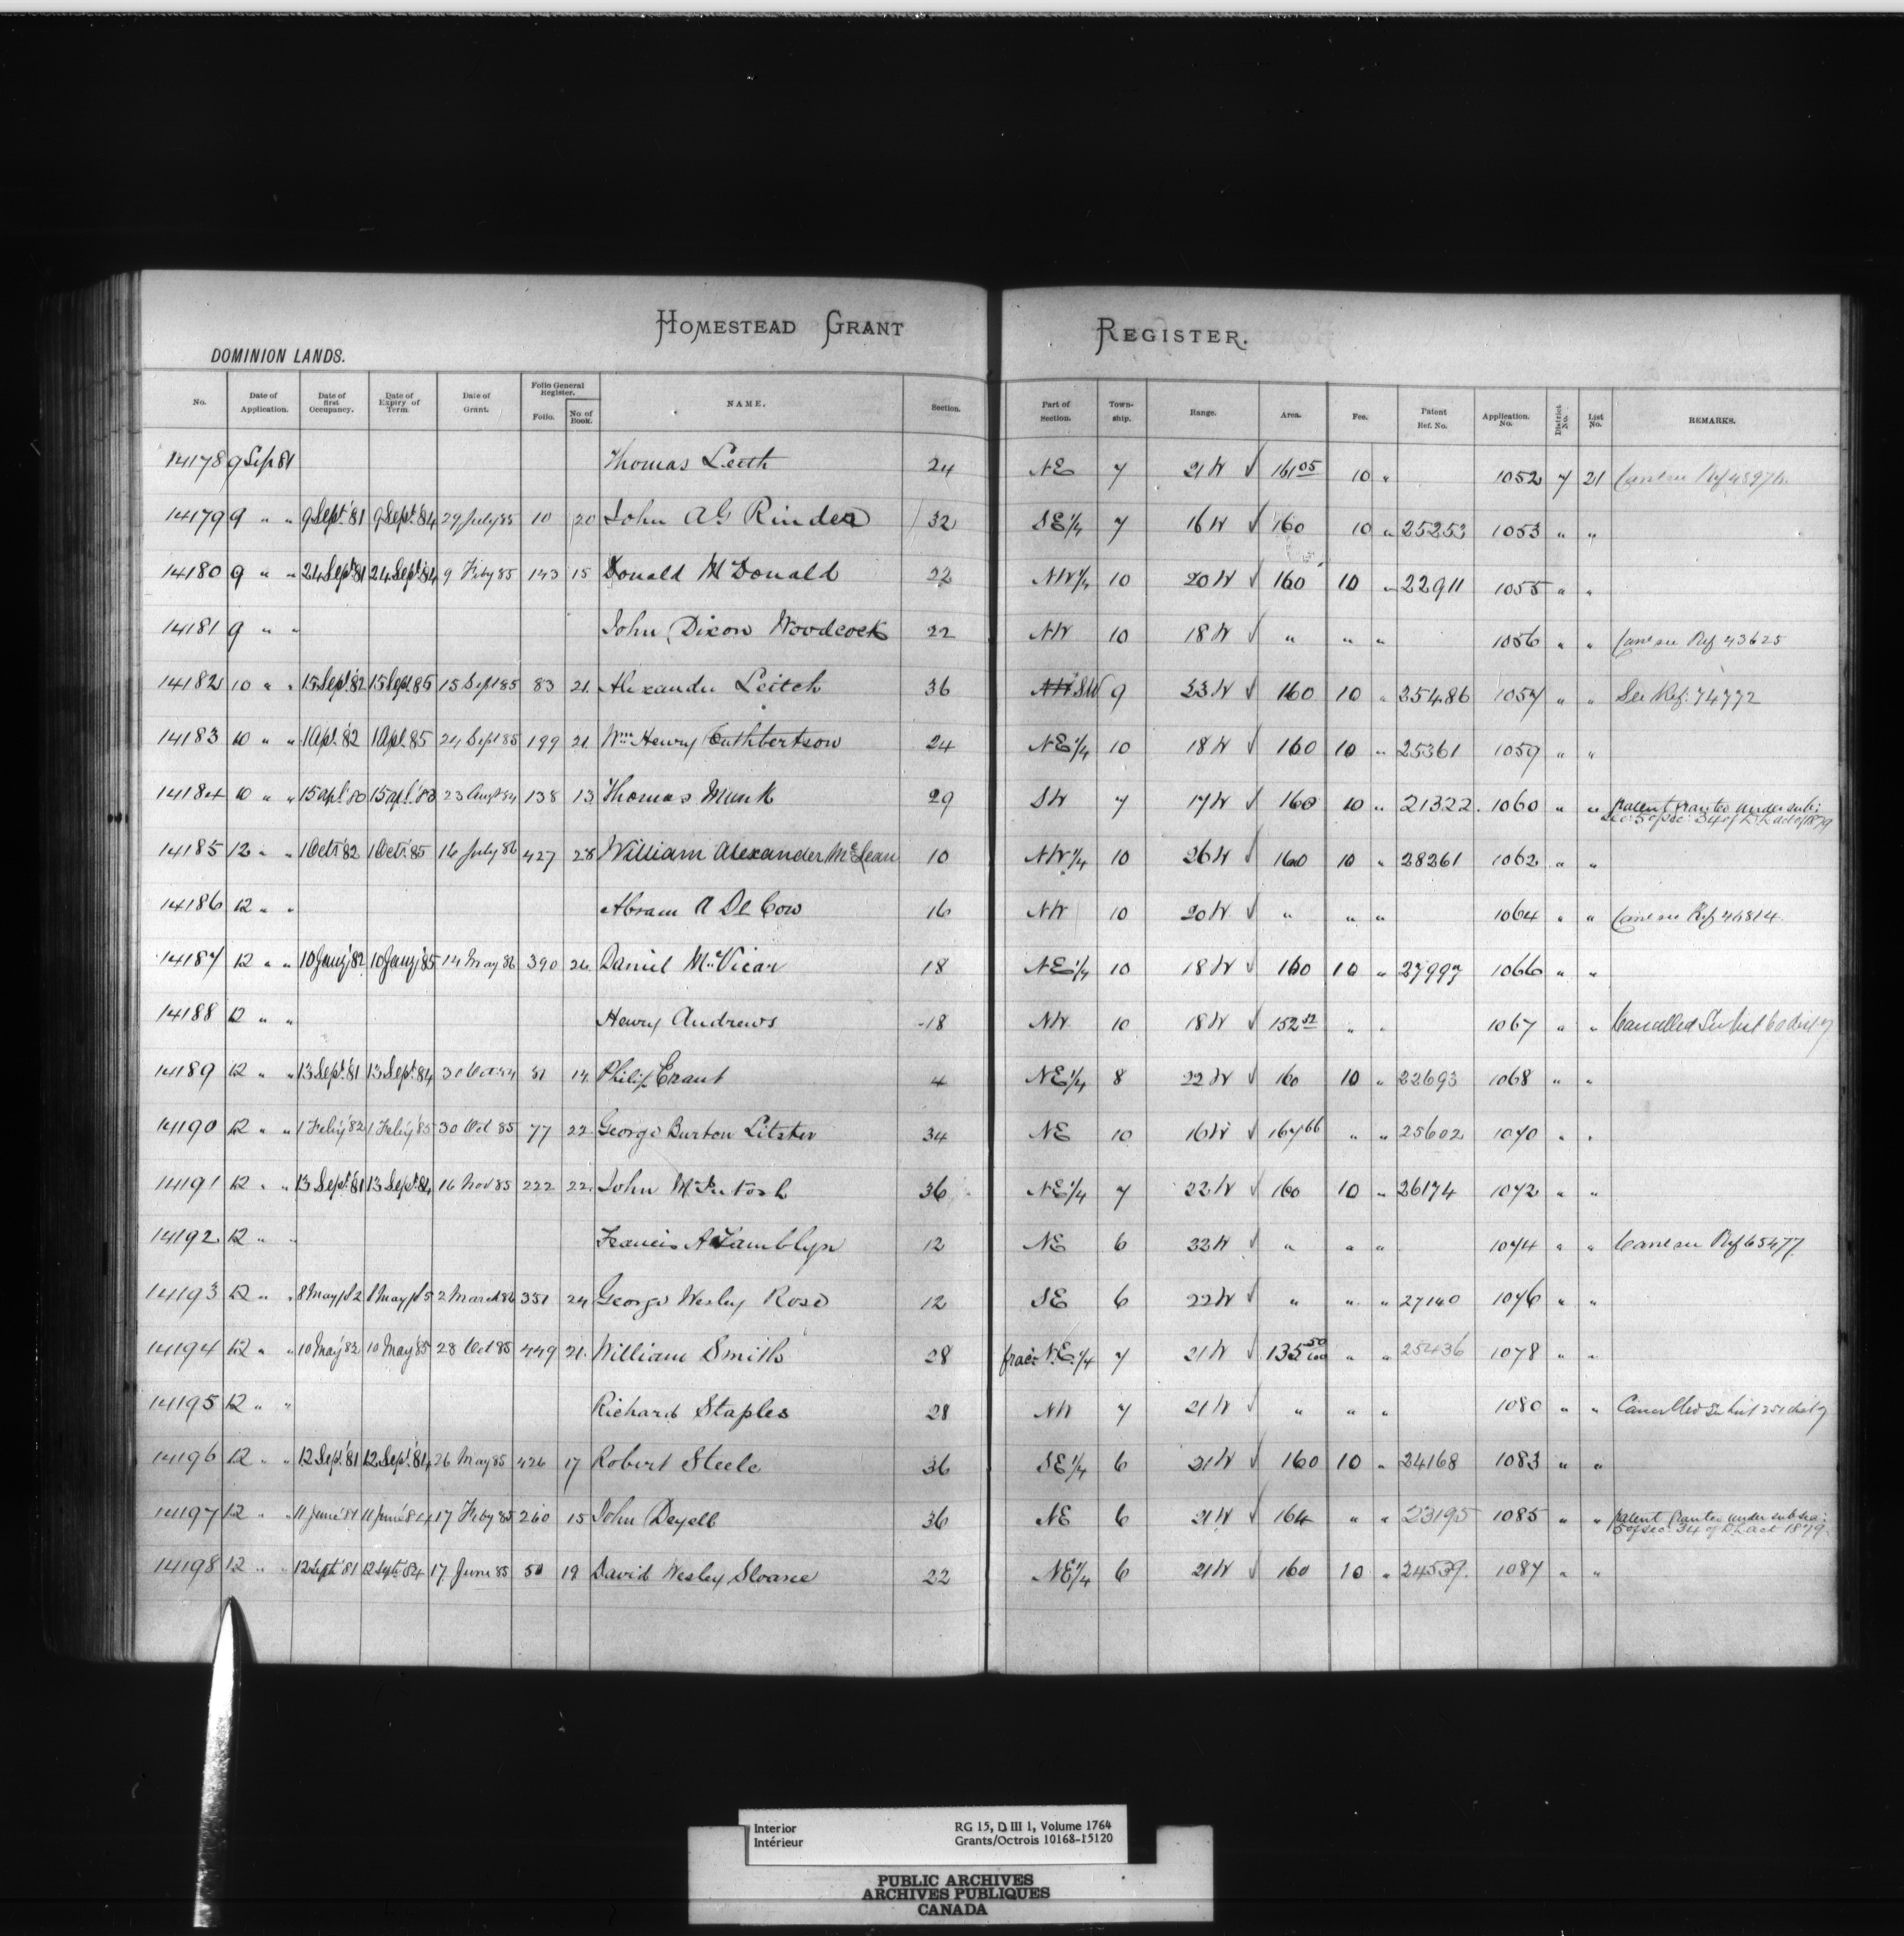 HOMESTEAD GRANT REGISTER.
DOMINION LANDS.
No. Date of Application. Date of first Occupancy. Date of Expiry of Term. Date of Grant. Folio General Register. Folio. No. of Book. NAME. Section. Part of Section. Township. Range. Area. Fee. Patent Ref. No. Application. No. District No. List No. REMARKS.
14178 9 Sep 81 Thomas Leith 24 NE 7 21 W √ 161 05 10 " 1052 7 21
14179 9 " " 9 Sept. 81 9 Sept. 84 29 July 85 10 20 John A G Rinder 32 SE 1/4 7 16 W √ 160 10 " 25253 1053 " "
14180 9 " " 24 Sept. 81 24 Sept. 84 9 Feby 85 143 15 Donald McDonald 22 NW 1/4 10 20 W √ 160 10 " 22911 1055 " "
14181 9 " " John Dixon Woodcock 22 NW 10 18 W √ " " " 1056 " " Canc see Ref 43625
14182 10 " " 15 Sept. 82 15 Sept. 85 15 Sept 85 83 21 Alexander Leitch 36 SW 9 23 W √ 160 10 " 25486 1057 " " See Ref. 74772
14183 10 " " 1 Apl. 82 1 Apl. 85 24 Sept 85 199 21 Wm Henry Cuthbertson 24 NE 1/4 10 18 W √ 160 10 " 25361 1059 " "
14184 10 " " 15 apl. 80 15 apl. 83 23 Augt 84 138 13 Thomas Munk 29 SW 7 17 W √ 160 10 " 21322 1060 " " Patent granted under sub:
sec: 5 of sec: 34 of D. L. act of 1879
14185 12 " " 1 Oct. 82 1 Oct. 85 16 July 86 427 28 William Alexander McLean 10 NW 1/4 10 26 W √ 160 10 " 28261 1062 " "
14186 12 " " Abram A De Cow 16 NW 10 20 W √ " " " 1064 " " Canc see Ref 46814
14187 12 " " 10 Jany 82 10 Jany 85 14 May 86 390 26 Daniel McVicar 18 NE 1/4 10 18 W √ 160 10 " 27997 1066 " "
14188 12 " " Henry Andrews 18 NW 10 18 W √ 152 32 " " 1067 " " Cancelled See list 60 dist 7
14189 12 " " 13 Sept. 81 13 Sept. 84 Oct 84 81 14 Philip Grant 4 NE 1/4 8 22 W √ 160 10 " 22693 1068 " "
14190 12 " " 1 Feby 82 1 Feby 85 30 Oct 85 77 22 George Burton Litster 34 NE 10 16 W √ 167 66 " " 25602 1070 " "
14191 12 " " 13 Sept. 81 13 Sept. 84 16 Nov 85 222 22 John McIntosh 36 NE 1/4 7 22 W √ 160 10 " 26174 1072 " "
14192 12 " " Francis A Tamblyn 12 NE 6 22 W √ " " " 1074 " " Canc see Ref 65477
14193 12 " " 8 May 82 8 May 85 2 March 86 351 24 George Wesley Rose 12 SE 6 22 W √ " " " 27140 1076 " "
14194 12 " " 10 May 82 10 May 85 28 Oct 85 449 21 William Smith 28 frac: N.E. 1/4 7 21 W √ 135 50/100 " " 25436 1078 " "
14195 12 " " Richard Staples 28 NW 7 21 W √ " " " 1080 " " Cancelled See list 251 dist 7
14196 12 " " 12 Sep. 81 12 Sept. 84 26 May 85 426 17 Robert Steele 36 SE 1/4 6 21 W √ 160 10 " 24168 1083 " "
14197 12 " " 11 June 81 11 June 84 17 Feby 85 260 15 John Deyell 36 NE 6 21 W √ 164 " " 23195 1085 " " Patent granted under sub sec:
5 of sec: 34 of D. L. act 1879
14198 12 " " 12 Sept 81 12 Sept. 84 17 June 85 50 19 David Wesley Sloane 22 NE 1/4 6 21 W √ 160 10 " 24539 1087 " "
Interior RG 15, D III 1, Volume 1764
Intérieur Grants/Octrois 10168-15120
PUBLIC ARCHIVES
ARCHIVES PUBLIQUES
CANADA